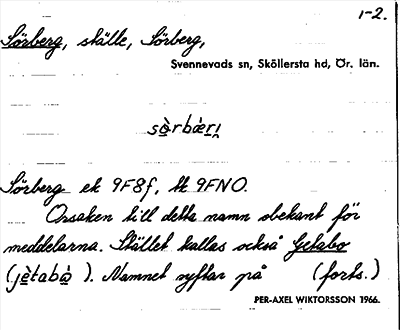 1-2.
Sörberg, ställe, Sörberg,
Svennevads sn, Sköllersta hd, Ör. län.
sə̀rbæ̀rı̣
Sörberg ek 9F8f, tk 9FNO.
Orsaken till detta namn obekant för
meddelarna. Stället kallas också Getabo
(jètabò̤ ). Namnet syftar på (forts.)
PER-AXEL WIKTORSSON 1966.